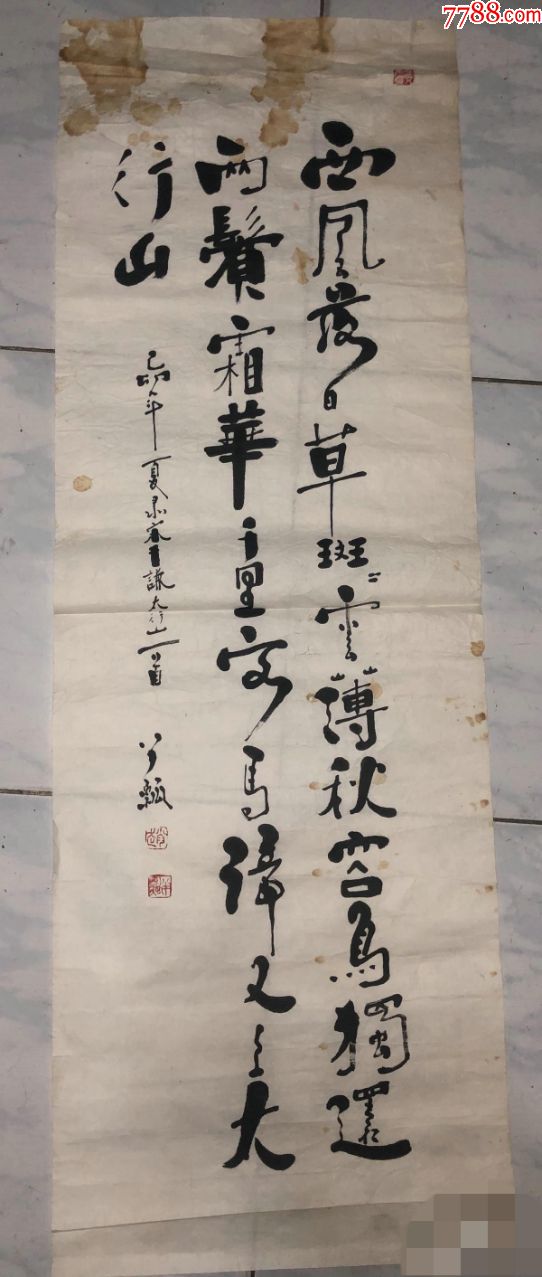 7788.com
西風落日草斑〻雲薄秋容鳥獨還
兩鬢霜華千里客馬蹄又上太
行山
己卯年夏录于謙太行山一首